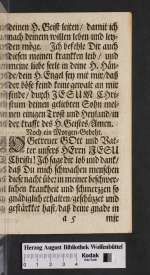 deinen H. Geist leiten / damit ich
nach deinem willen leben und ley-
den möge. Ich befehle Dir auch
diesen meinen krancken leib / und
meine liebe seele in deine H. Hän-
de / dein H. Engel sey mit mir / daß
der böse feind keine gewalt an mir
finde / durch JESUM Chri-
stum deinen geliebten Sohn mei-
nen einigen Trost und Heyland / in
der krafft des H. Geistes / Amen.
Noch ein Morgen-Gebeht.
O Getreuer GOtt und Va-
ter unsers HErrn JESU
Christi! Ich sage dir lob und danck /
daß Du mich schwachen menschen
diese nacht über / in meiner beschwer-
lichen kranckheit und schmertzen so
gnädiglich erhalten / geschützet und
gestärcket hast / daß deine gnade in
a 5
mir
Herzog August Bibliothek Wolfenbüttel
Kodak